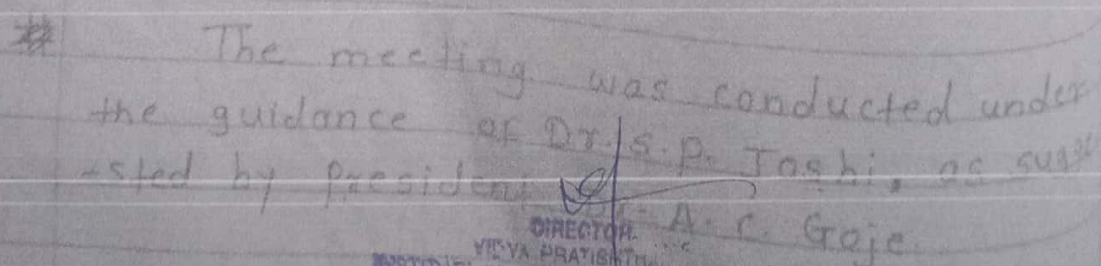 The meeting was conducted under
the guidance of Dr. S. P. Joshi, as sugge
-sted by President Dr. A. C. Goje.
DIRECTOR
VIDYA PRATISHTH